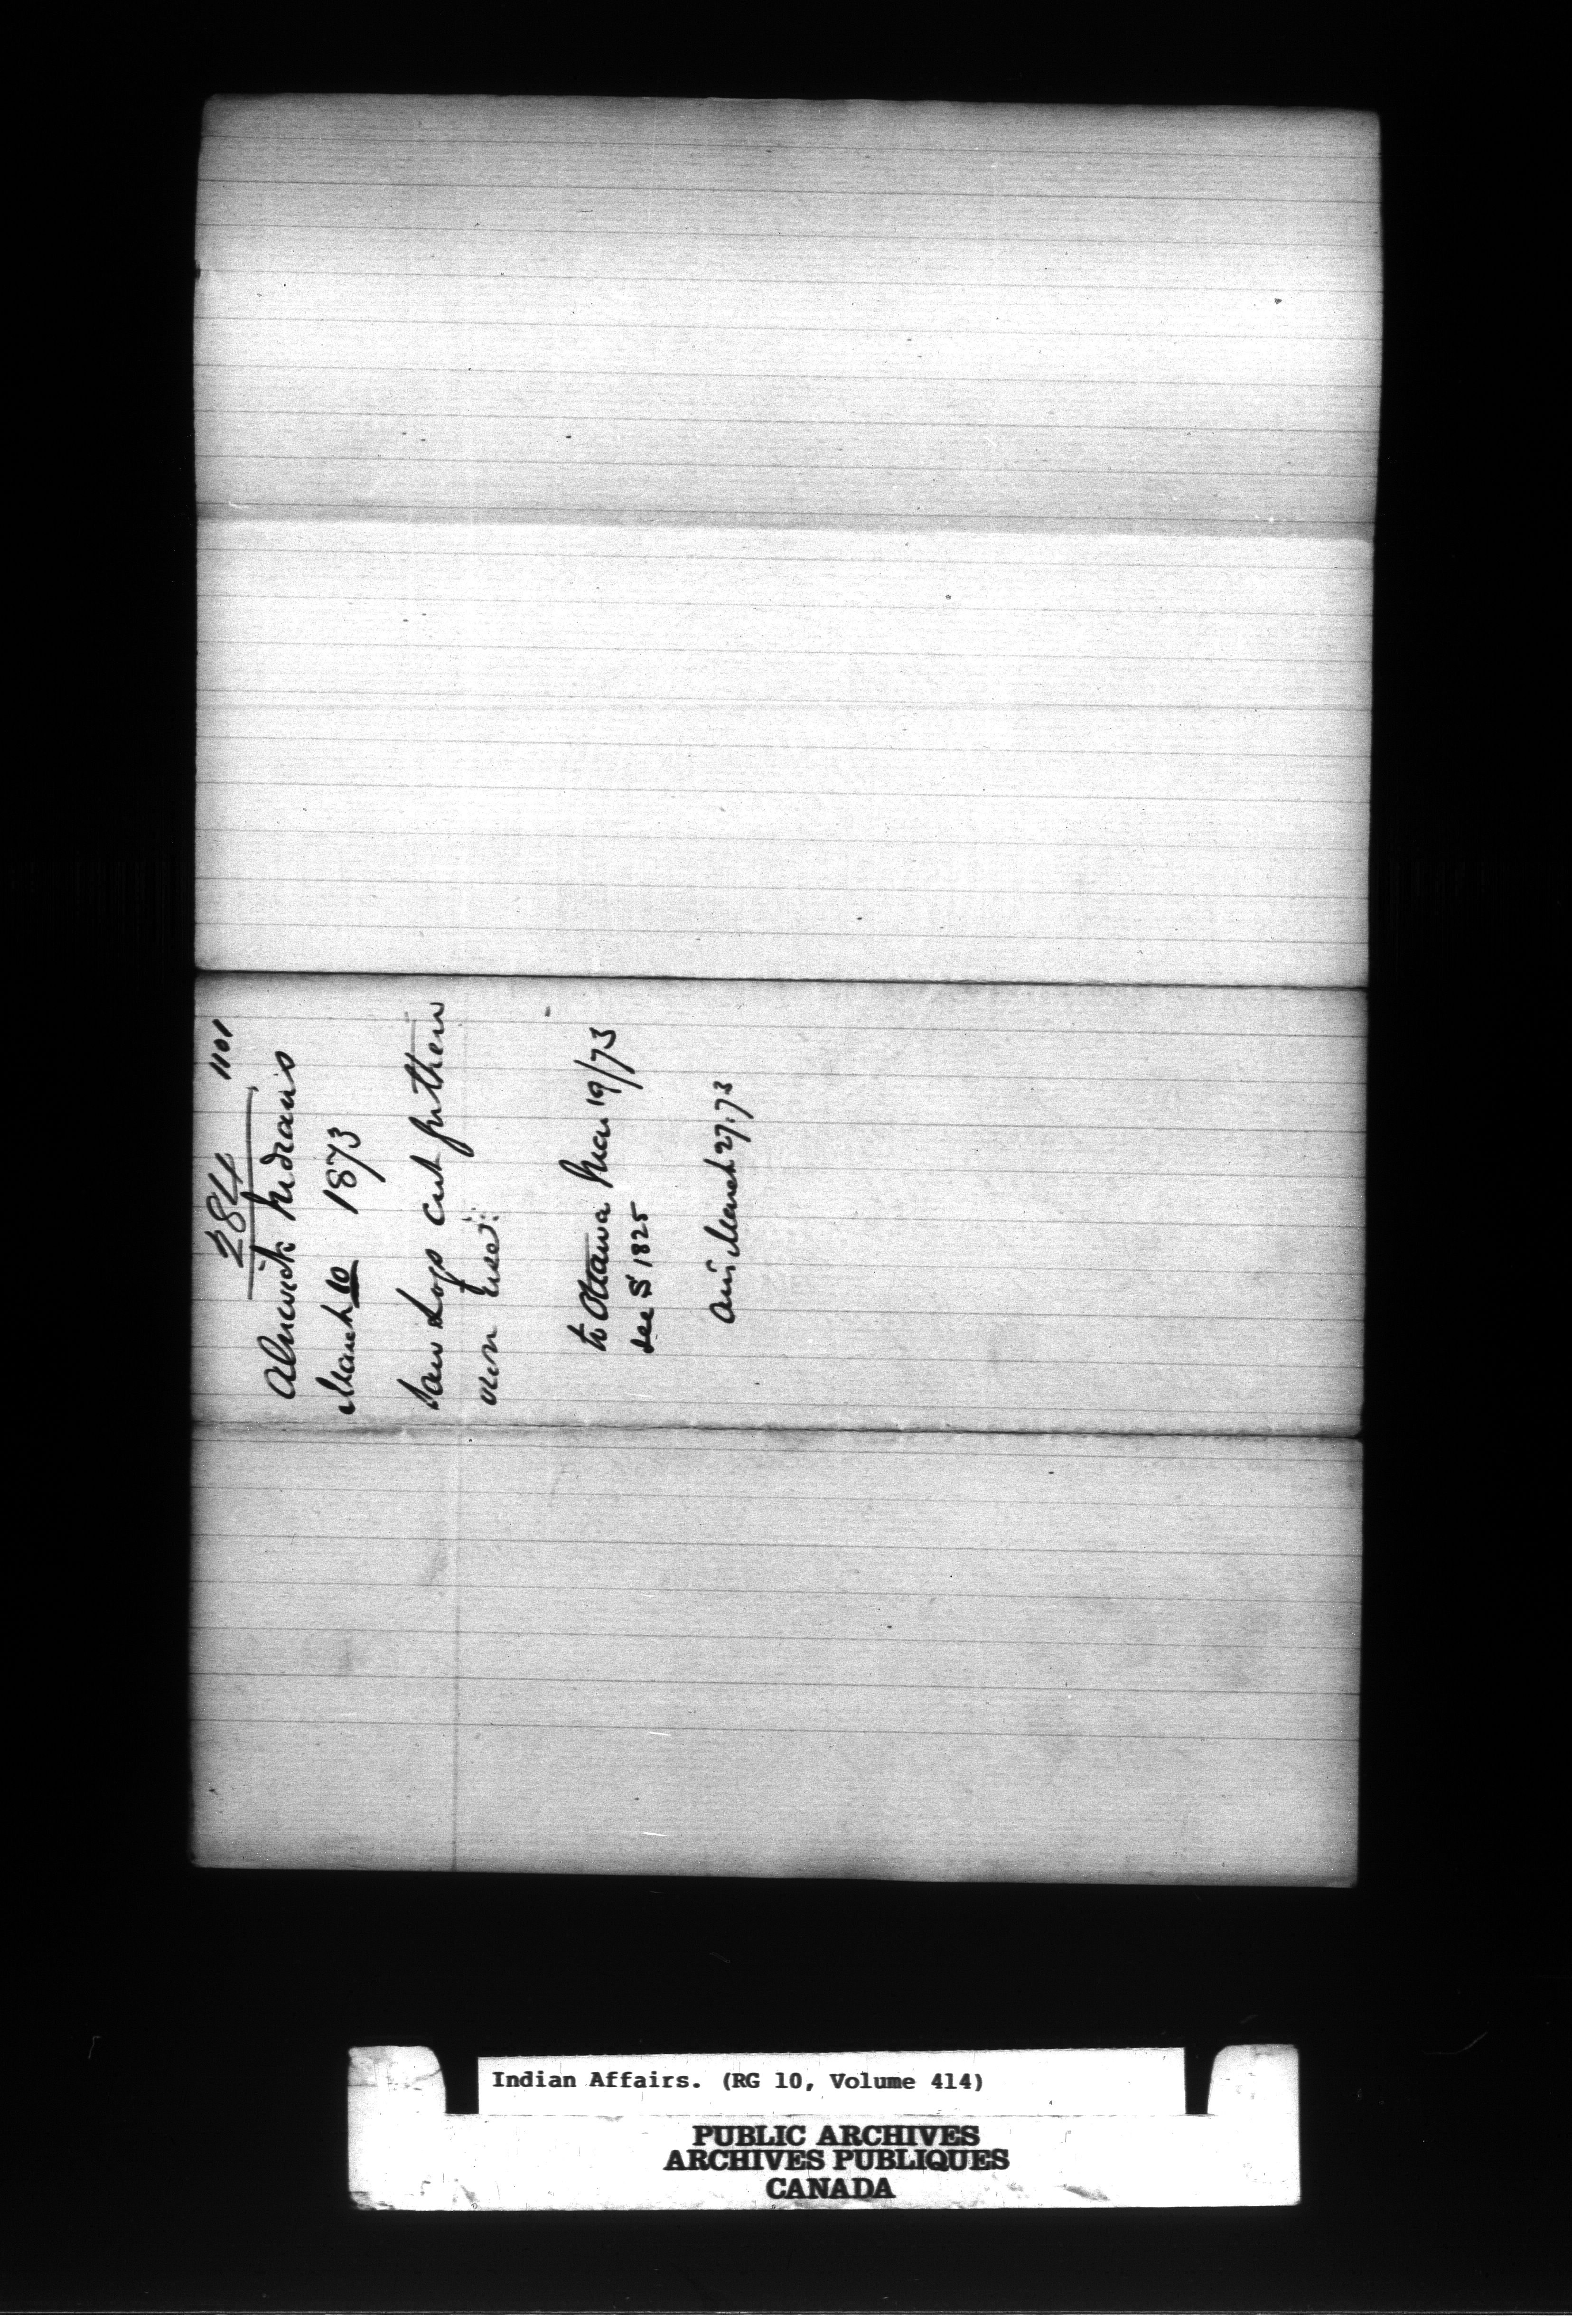 284 1101
Alnwick Indians
March 10 1873
Saw Logs cut for their
own use
to Ottawa Mar 19/73
see S 1825
Ans March 27.73
Indian Affairs. (RG 10, Volume 414)
PUBLIC ARCHIVES
ARCHIVES PUBLIQUES
CANADA